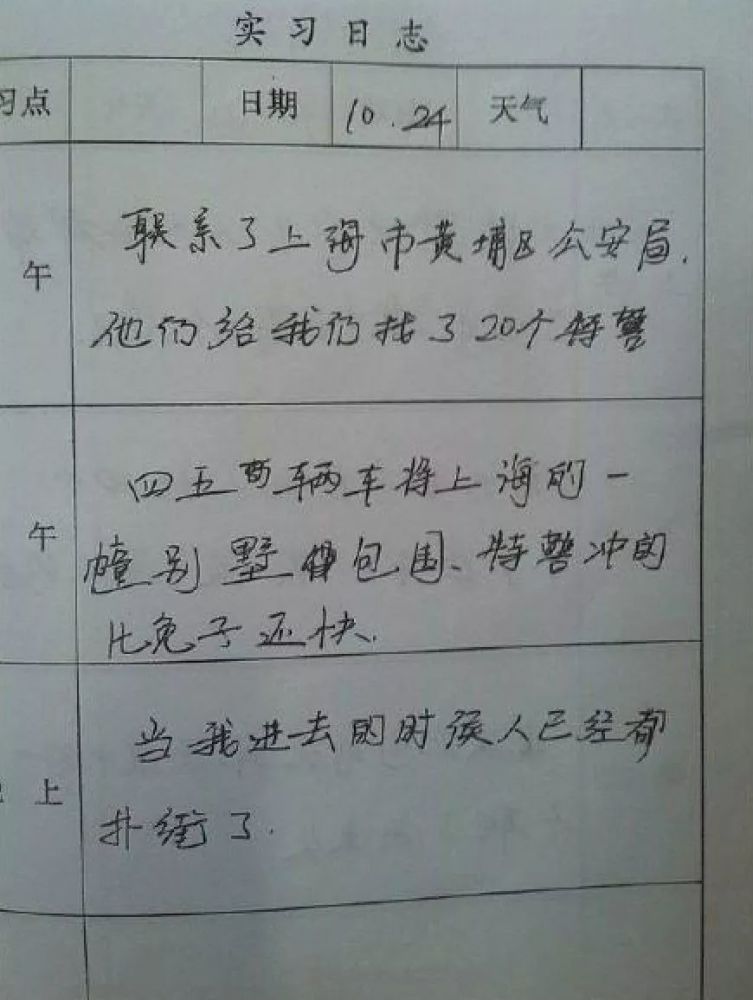 实习日志
习点 日期 10.24 天气
午
联系了上海市黄埔区公安局.
他们给我们找了20个特警
午
四五百辆车将上海的一
幢别墅包围、特警冲的
比兔子还快.
上
当我进去的时候人已经都
扑街了.